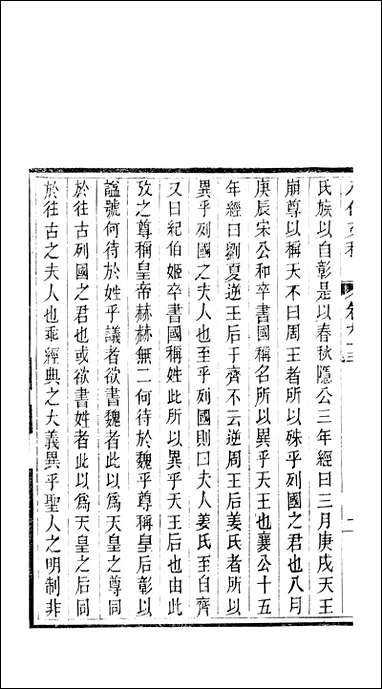 氏族以自彰是以春秋隱公三年經曰三月庚戌天王
崩尊以稱天不曰周王者所以殊乎列國之君也八月
庚辰宋公和卒書國稱名所以異乎天王也襄公十五
年經曰劉夏逆王后于齊不云逆周王后姜氏者所以
異乎列國之夫人也至乎列國則曰夫人姜氏至自齊
又曰紀伯姬卒書國稱姓此所以異乎天王后也由此
攷之尊稱皇帝赫赫無二何待於魏乎尊稱皇后彰以
謚號何待於姓乎議者欲書魏者此以爲天皇之尊同
於往古列國之君也或欲書姓者此以爲天皇之后同
於往古之夫人也乖經典之大義異乎聖人之明制非